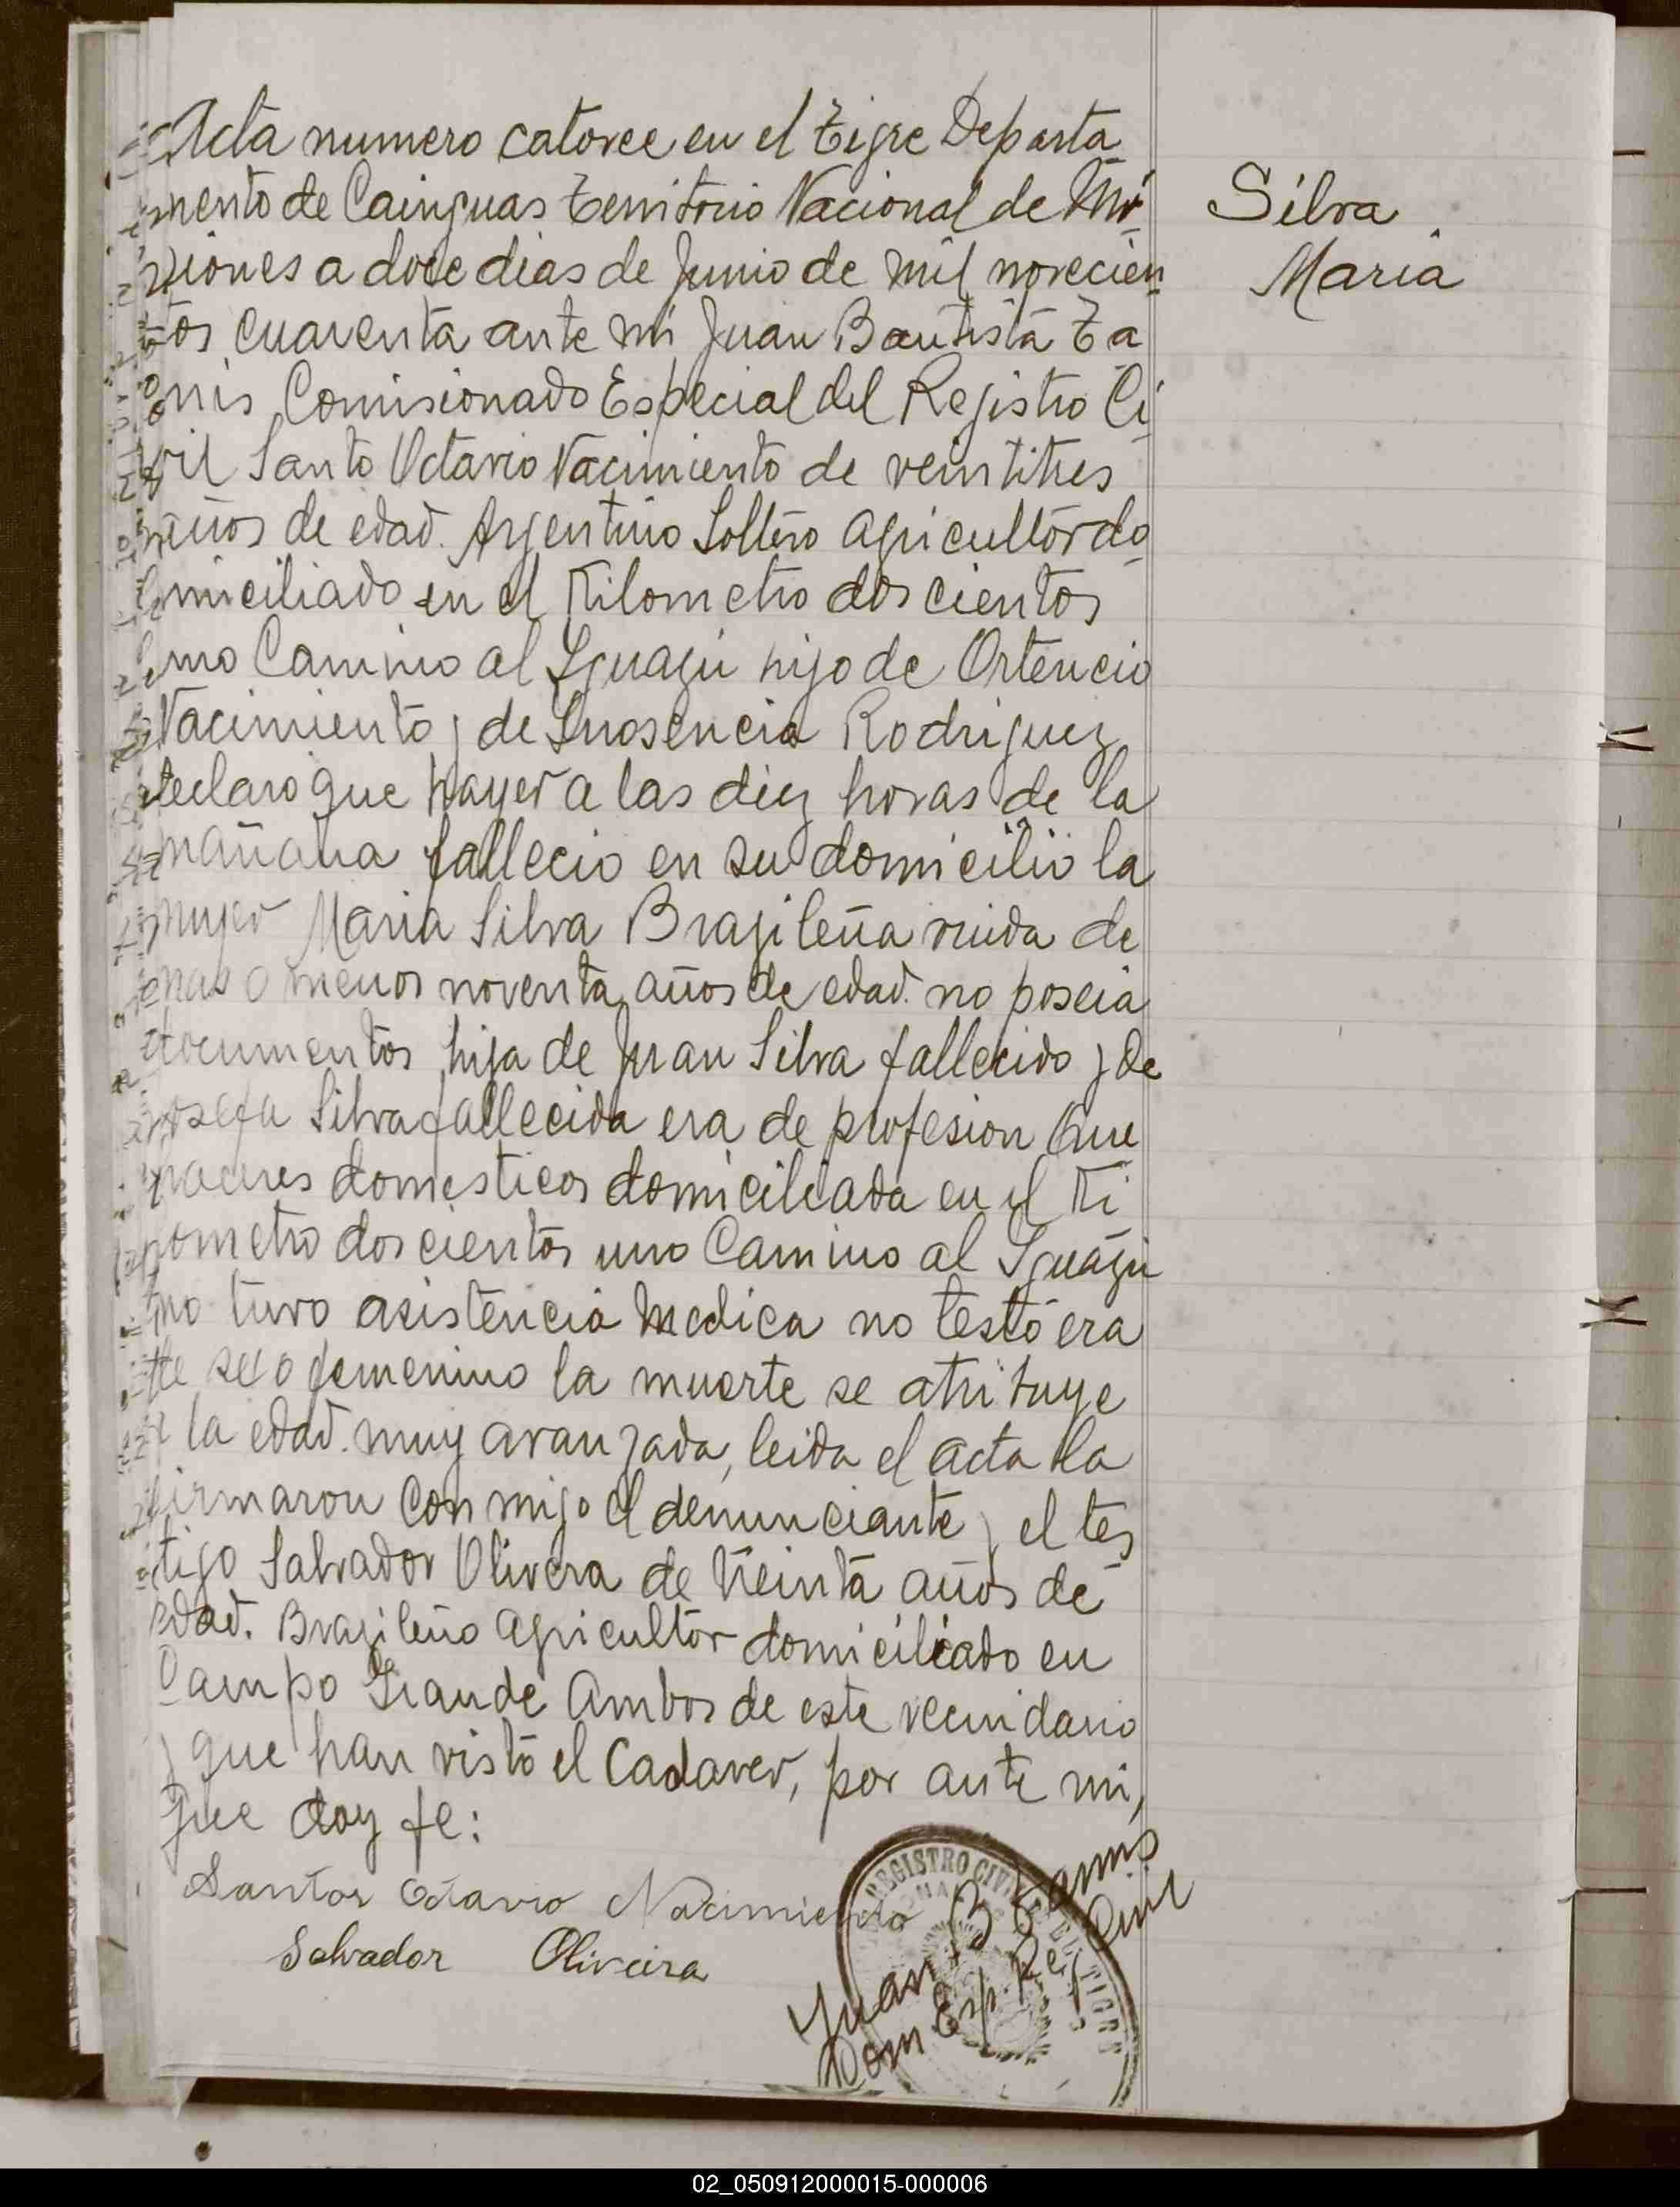 Acta numero catorce en el Tigre Departa
mento de Cainguas Territorio Nacional de Mi
siones a doce dias de Junio de mil novecien
tos cuarenta ante mi Juan Bautista Ta
nis Comisionado Especial del Registro Ci
vil Santo Octavio Nacimiento de veintitres
años de edad. Argentino Soltero agricultor do
miciliado en el Kilometro dos cientos
uno Camino al Iguazu hijo de Ortencio
Nacimiento y de Inosencia Rodriguez
declaro que hayer a las diez horas de la
mañana fallecio en su domicilio la
mujer Maria Silva Brazileña viuda de
mas o menos noventa años de edad. no poseia
documentos hija de Juan Silva fallecido y de
Josefa Silva fallecida era de profesion Que
haceres domesticos domiciliada en el Ki
lometro dos cientos uno Camino al Iguazu
no tuvo asistencia medica no testó era
de sexo femenino la muerte se atribuye
a la edad. muy avanzada, leida el acta la
firmaron Con migo el denunciante y el tes
tigo Salvador Olivera de treinta años de
edad. Brazileño agricultor domiciliado en
Campo Grande Ambos de este vecindario
y que han visto el Cadaver, por ante mi,
que doy fe:
Santos Otavio Nacimiento
Salvador Oliveira
Juan B Tanis
Com Esp. Reg Civil
REGISTRO CIVIL
EL TIGRE
Silva
Maria
02_050912000015-000006